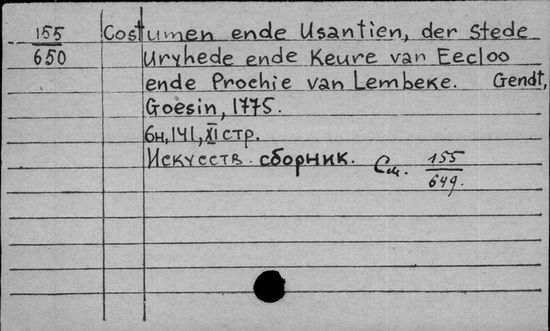 155 Costumen ende Usantien, der stede
650 Uryhede ende Keure van Eecloo
ende Prochie van Lembeke. Gendt,
Goesin, 1775.
6н, 141, XI стр.
Искусств. сборник. См. 155
649.